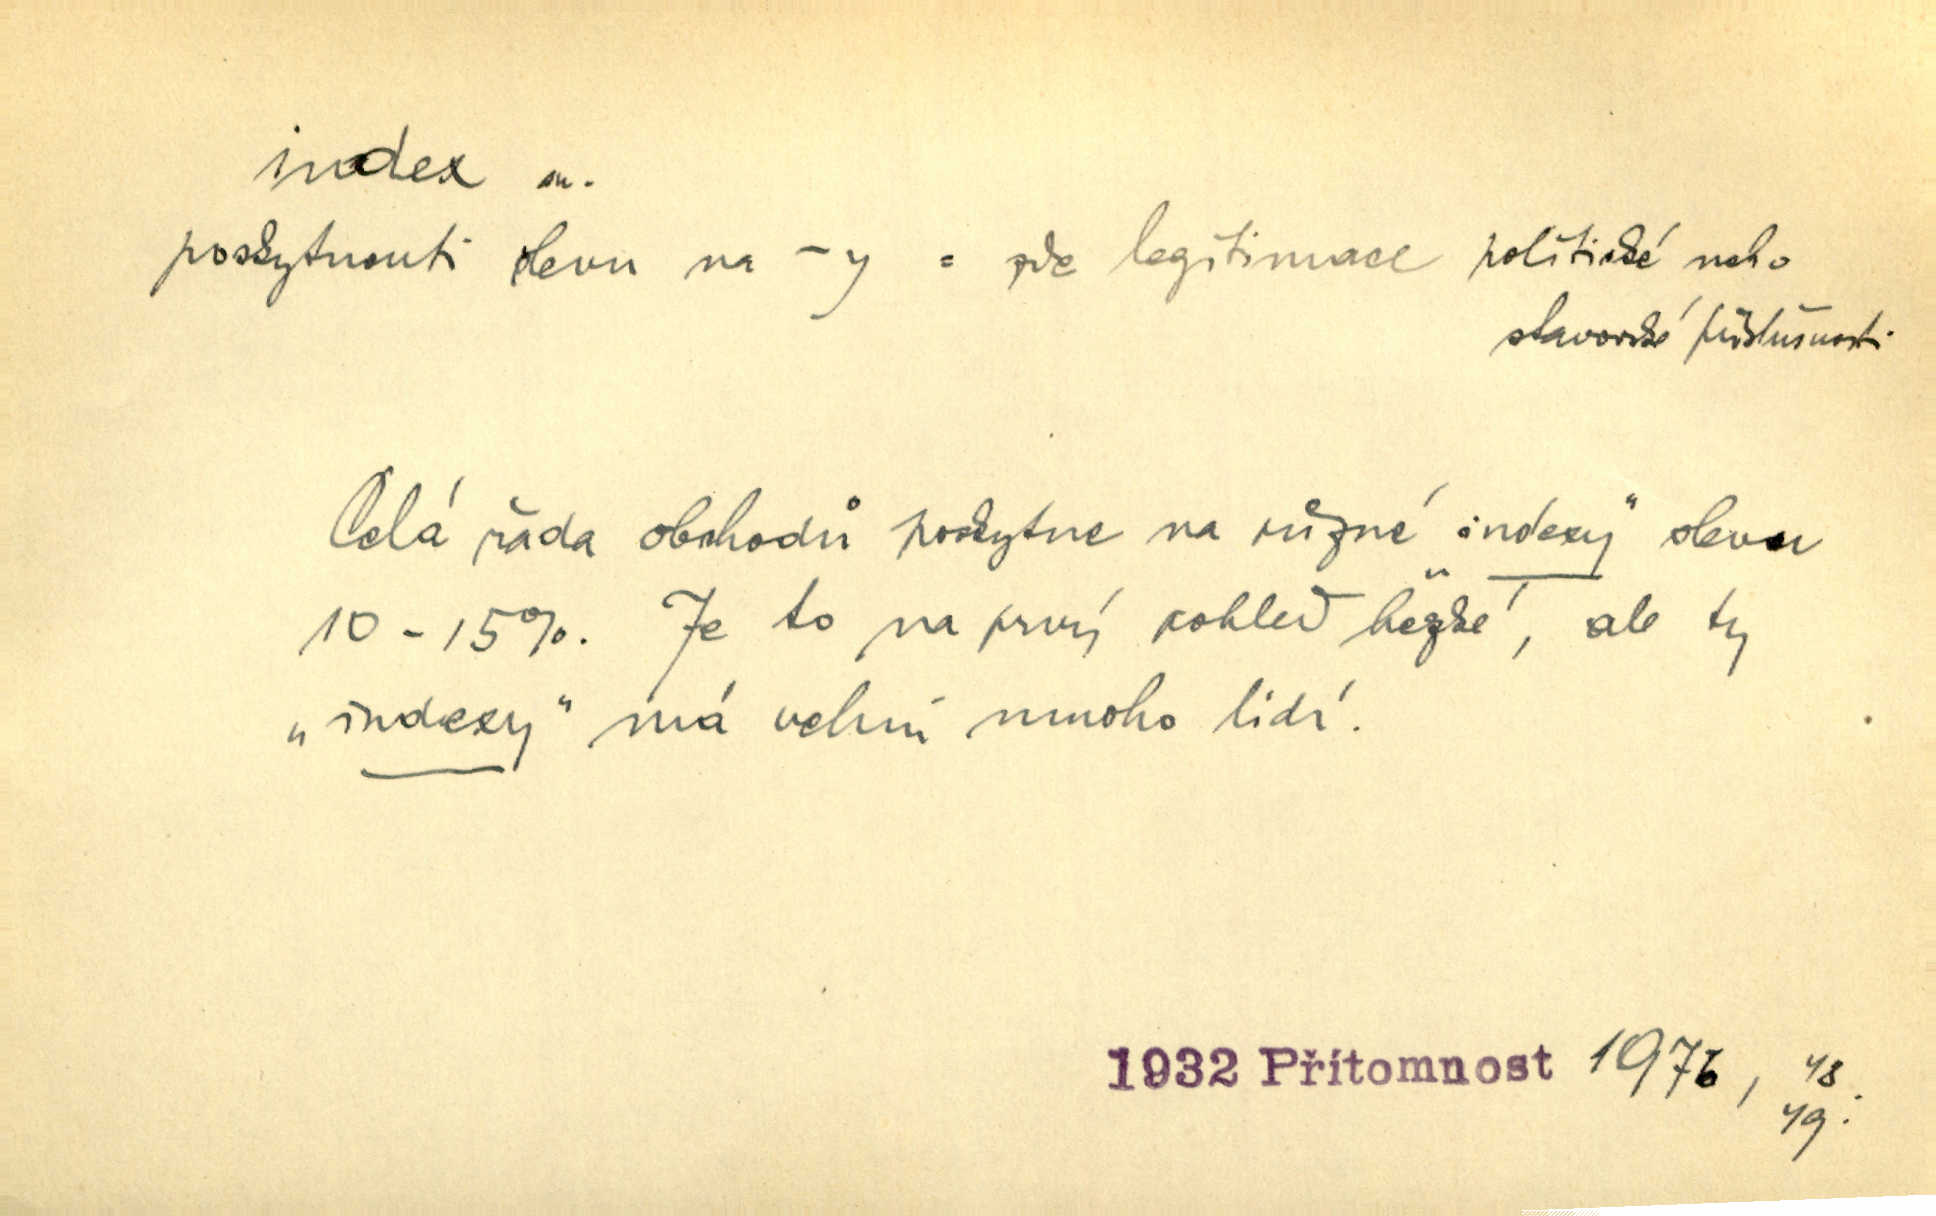 index m.
poskytnouti slevu na -y = zde legitimace politické nebo
stavovské příslušnosti
Celá řada obchodů poskytne na různé „indexy“ slevu
10-15%. Je to na prvý pohled hezké, ale ty
„indexy“ má velmi mnoho lidí.
1932 Přítomnost 197b, 48
49.